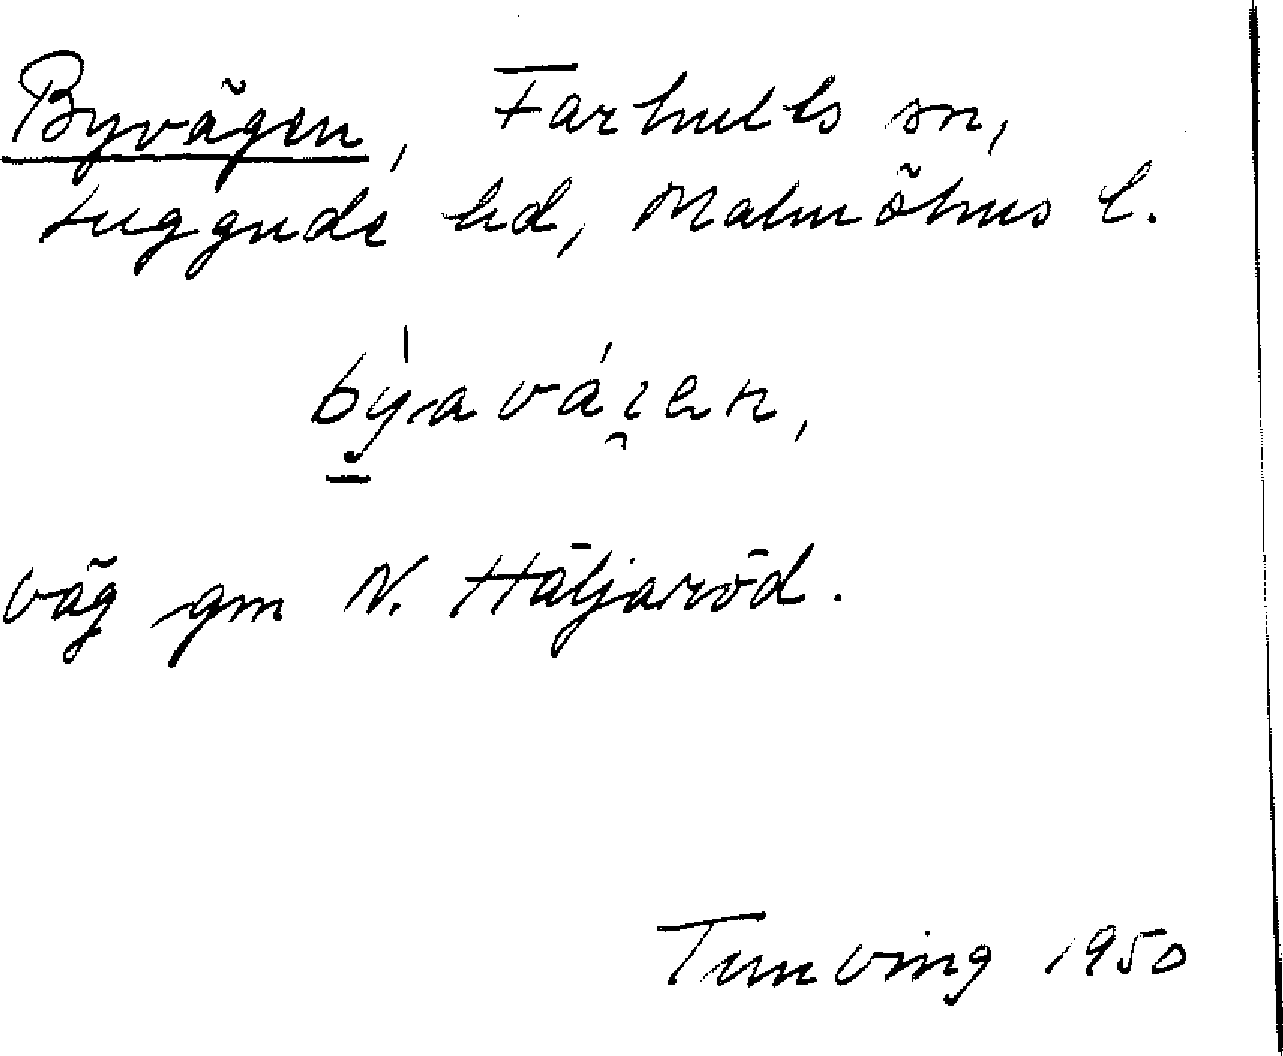 Byvägen, Farhults sn,
Luggude hd, Malmöhus l.
býavá̯ıen,
väg gm N. Häljaröd.
Tunving 1950